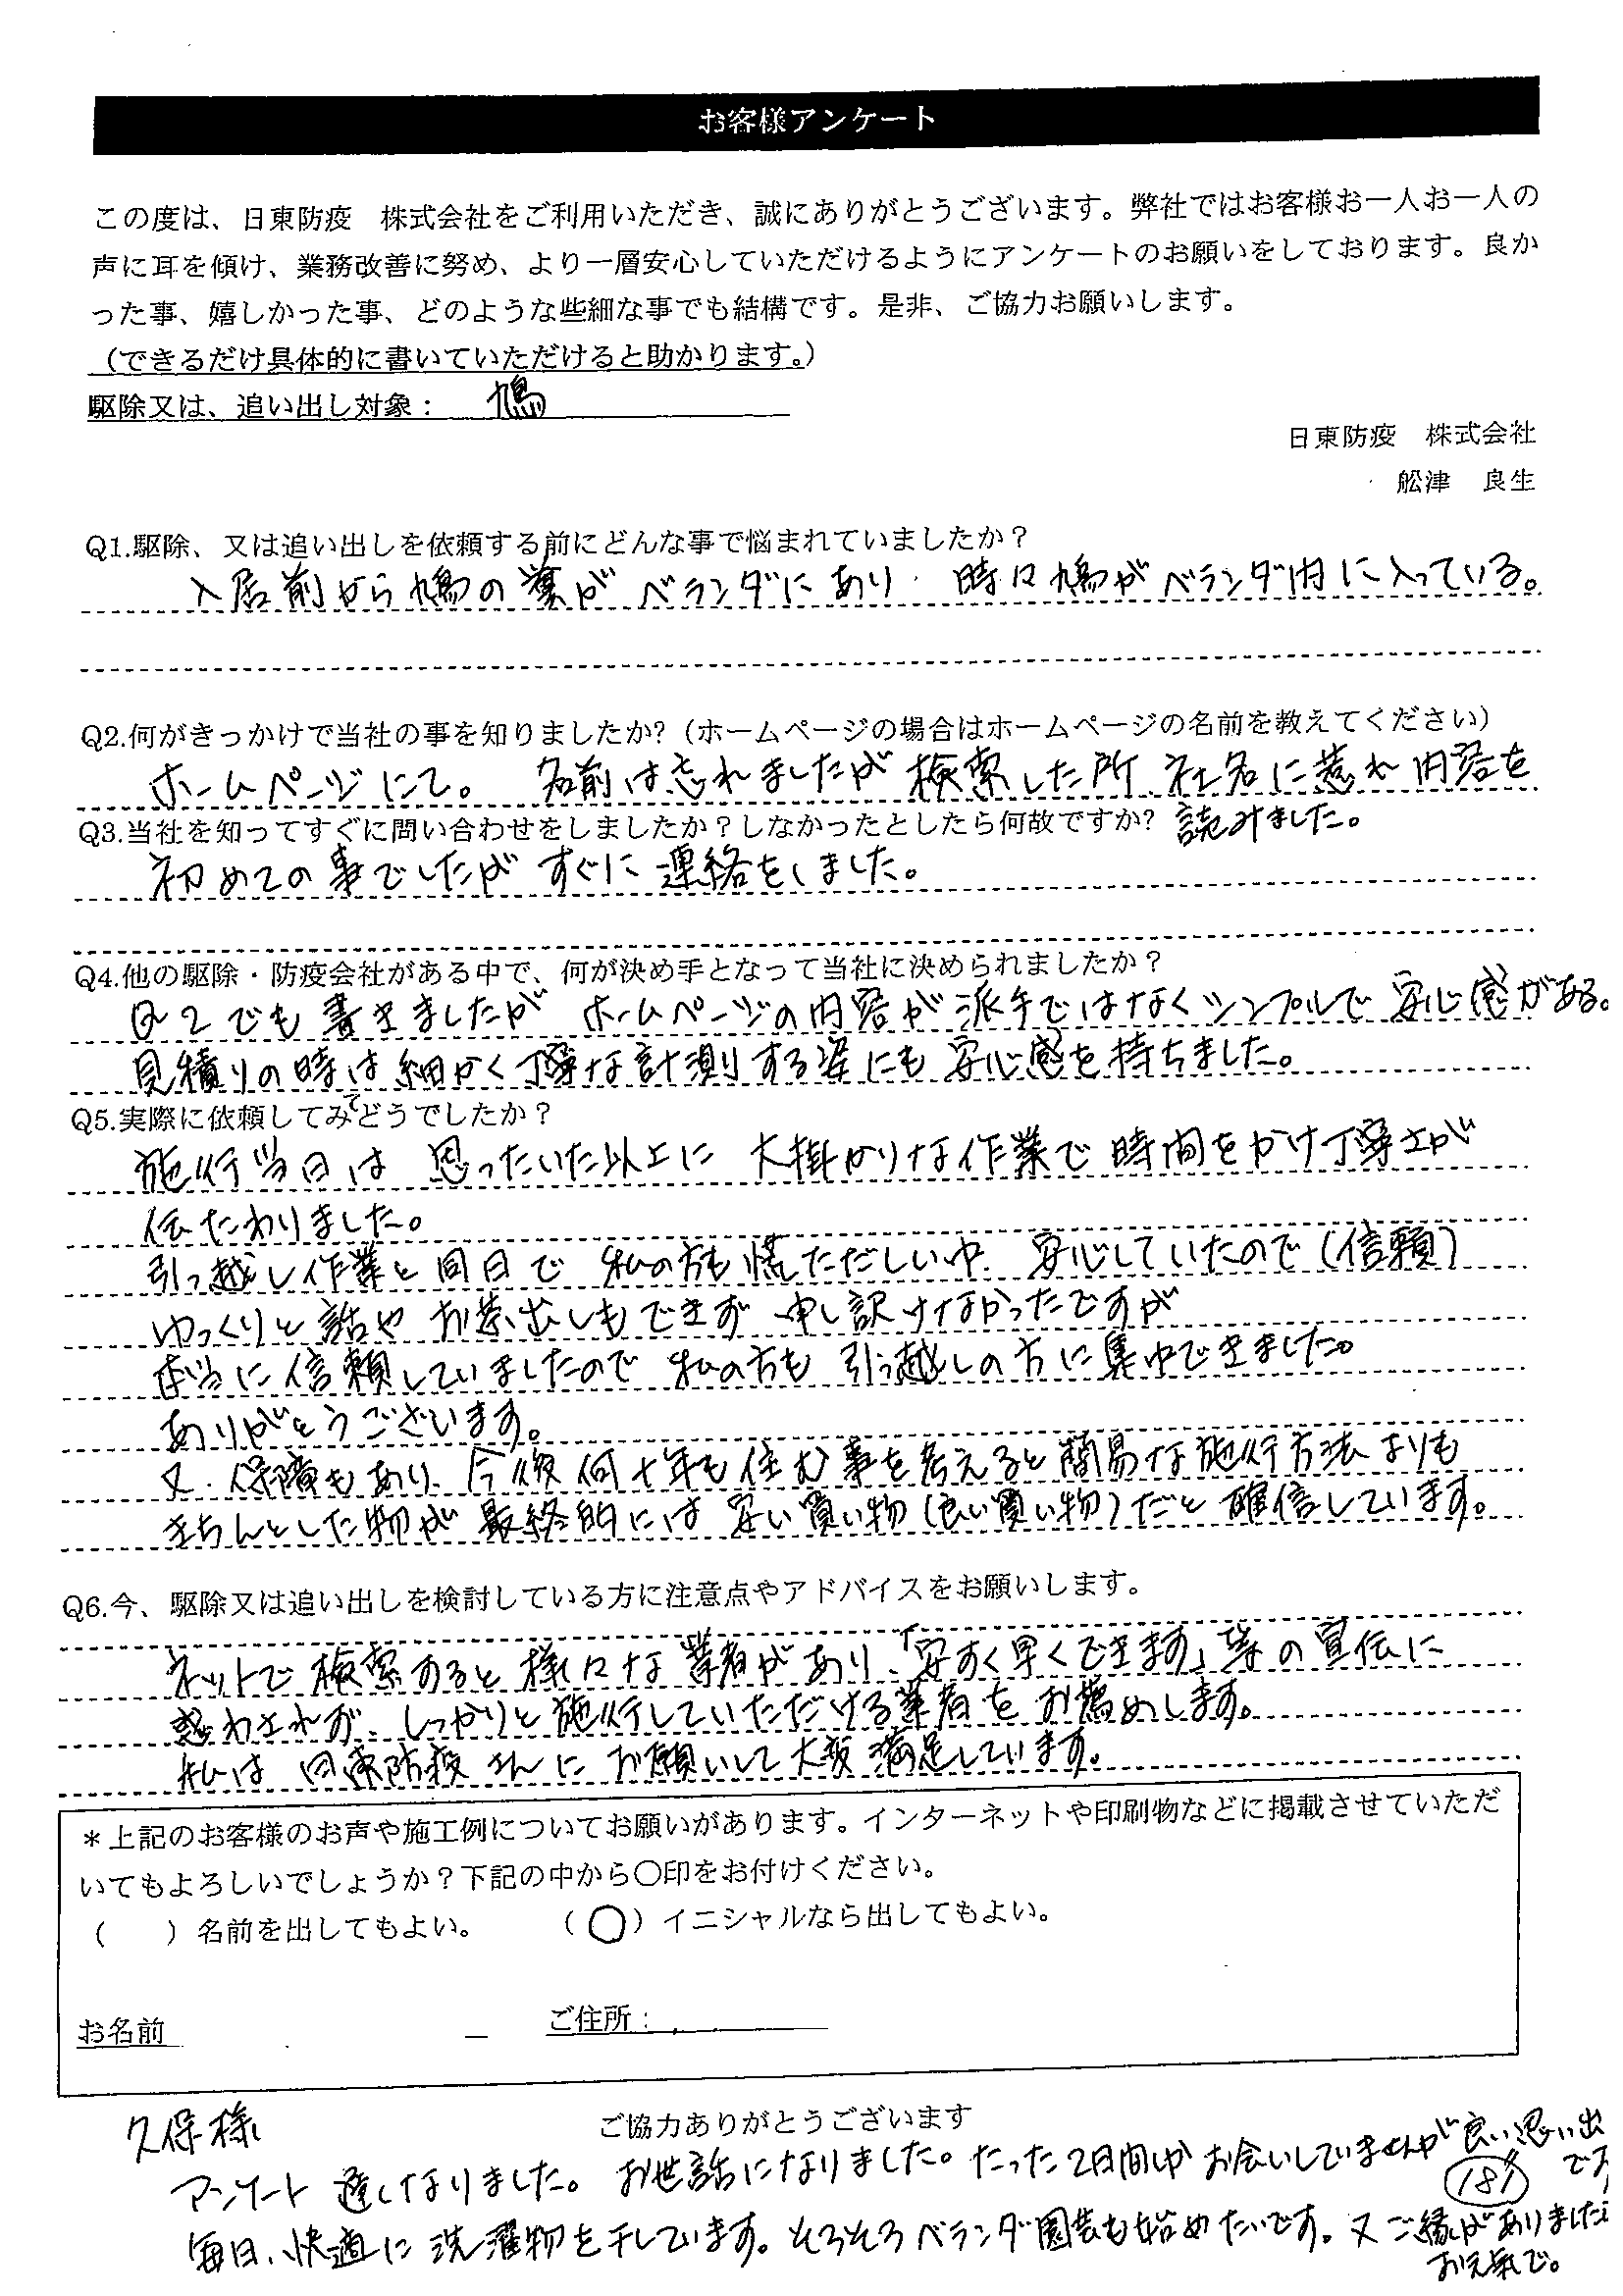 お客様アンケート
この度は、日東防疫　株式会社をご利用いただき、誠にありがとうございます。弊社ではお客様お一人お一人の
声に耳を傾け、業務改善に努め、より一層安心していただけるようにアンケートのお願いをしております。良か
った事、嬉しかった事、どのような些細な事でも結構です。是非、ご協力お願いします。
（できるだけ具体的に書いていただけると助かります。）
駆除又は、追い出し対象： 鳩
日東防疫　株式会社
舩津　良生
Q1.駆除、又は追い出しを依頼する前にどんな事で悩まれていましたか？
入居前から鳩の巣がベランダにあり、時々鳩がベランダ内に入っている。
Q2.何がきっかけで当社の事を知りましたか?（ホームページの場合はホームページの名前を教えてください）
ホームページにて。 名前は忘れましたが検索した所 社名に惹れ内容を
読みました。
Q3.当社を知ってすぐに問い合わせをしましたか？しなかったとしたら何故ですか?
初めての事でしたがすぐに連絡をしました。
Q4.他の駆除・防疫会社がある中で、何が決め手となって当社に決められましたか？
Q2でも書きましたが ホームページの内容が派手ではなくシンプルで安心感がある。
見積りの時は細かく丁寧な計測する姿にも安心感を持ちました。
Q5.実際に依頼してみてどうでしたか？
施行当日は 思ったいた以上に 大掛かりな作業で時間をかけ丁寧さが
伝たわりました。
引っ越し作業と同日で 私の方も慌ただしい中、安心していたので（信頼）
ゆっくりと話やお茶出しもできず 申し訳けなかったですが
本当に信頼していましたので 私の方も引っ越しの方に集中できました。
ありがとうございます。
又、保障もあり、今後何十年も住む事を考えると簡易な施行方法よりも
きちんとした物が最終的には安い買い物（良い買い物）だと確信しています。
Q6.今、駆除又は追い出しを検討している方に注意点やアドバイスをお願いします。
ネットで検索すると様々な業者があり、「安すく早くできます」等の宣伝に
惑わされず、しっかりと施行していただける業者をお薦めします。
私は日東防疫さんにお願いして大変満足しています。
＊上記のお客様のお声や施工例についてお願いがあります。インターネットや印刷物などに掲載させていただ
いてもよろしいでしょうか？下記の中から〇印をお付けください。
（　　）名前を出してもよい。　（〇）イニシャルなら出してもよい。
お名前　ご住所：
ご協力ありがとうございます
久保様
アンケート 遅くなりました。お世話になりました。たった2日間しかお会いしていませんが良い思い出
です
毎日、快適に洗濯物を干しています。そろそろベランダ園芸も始めたいです。又ご縁がありましたら
お元気で。